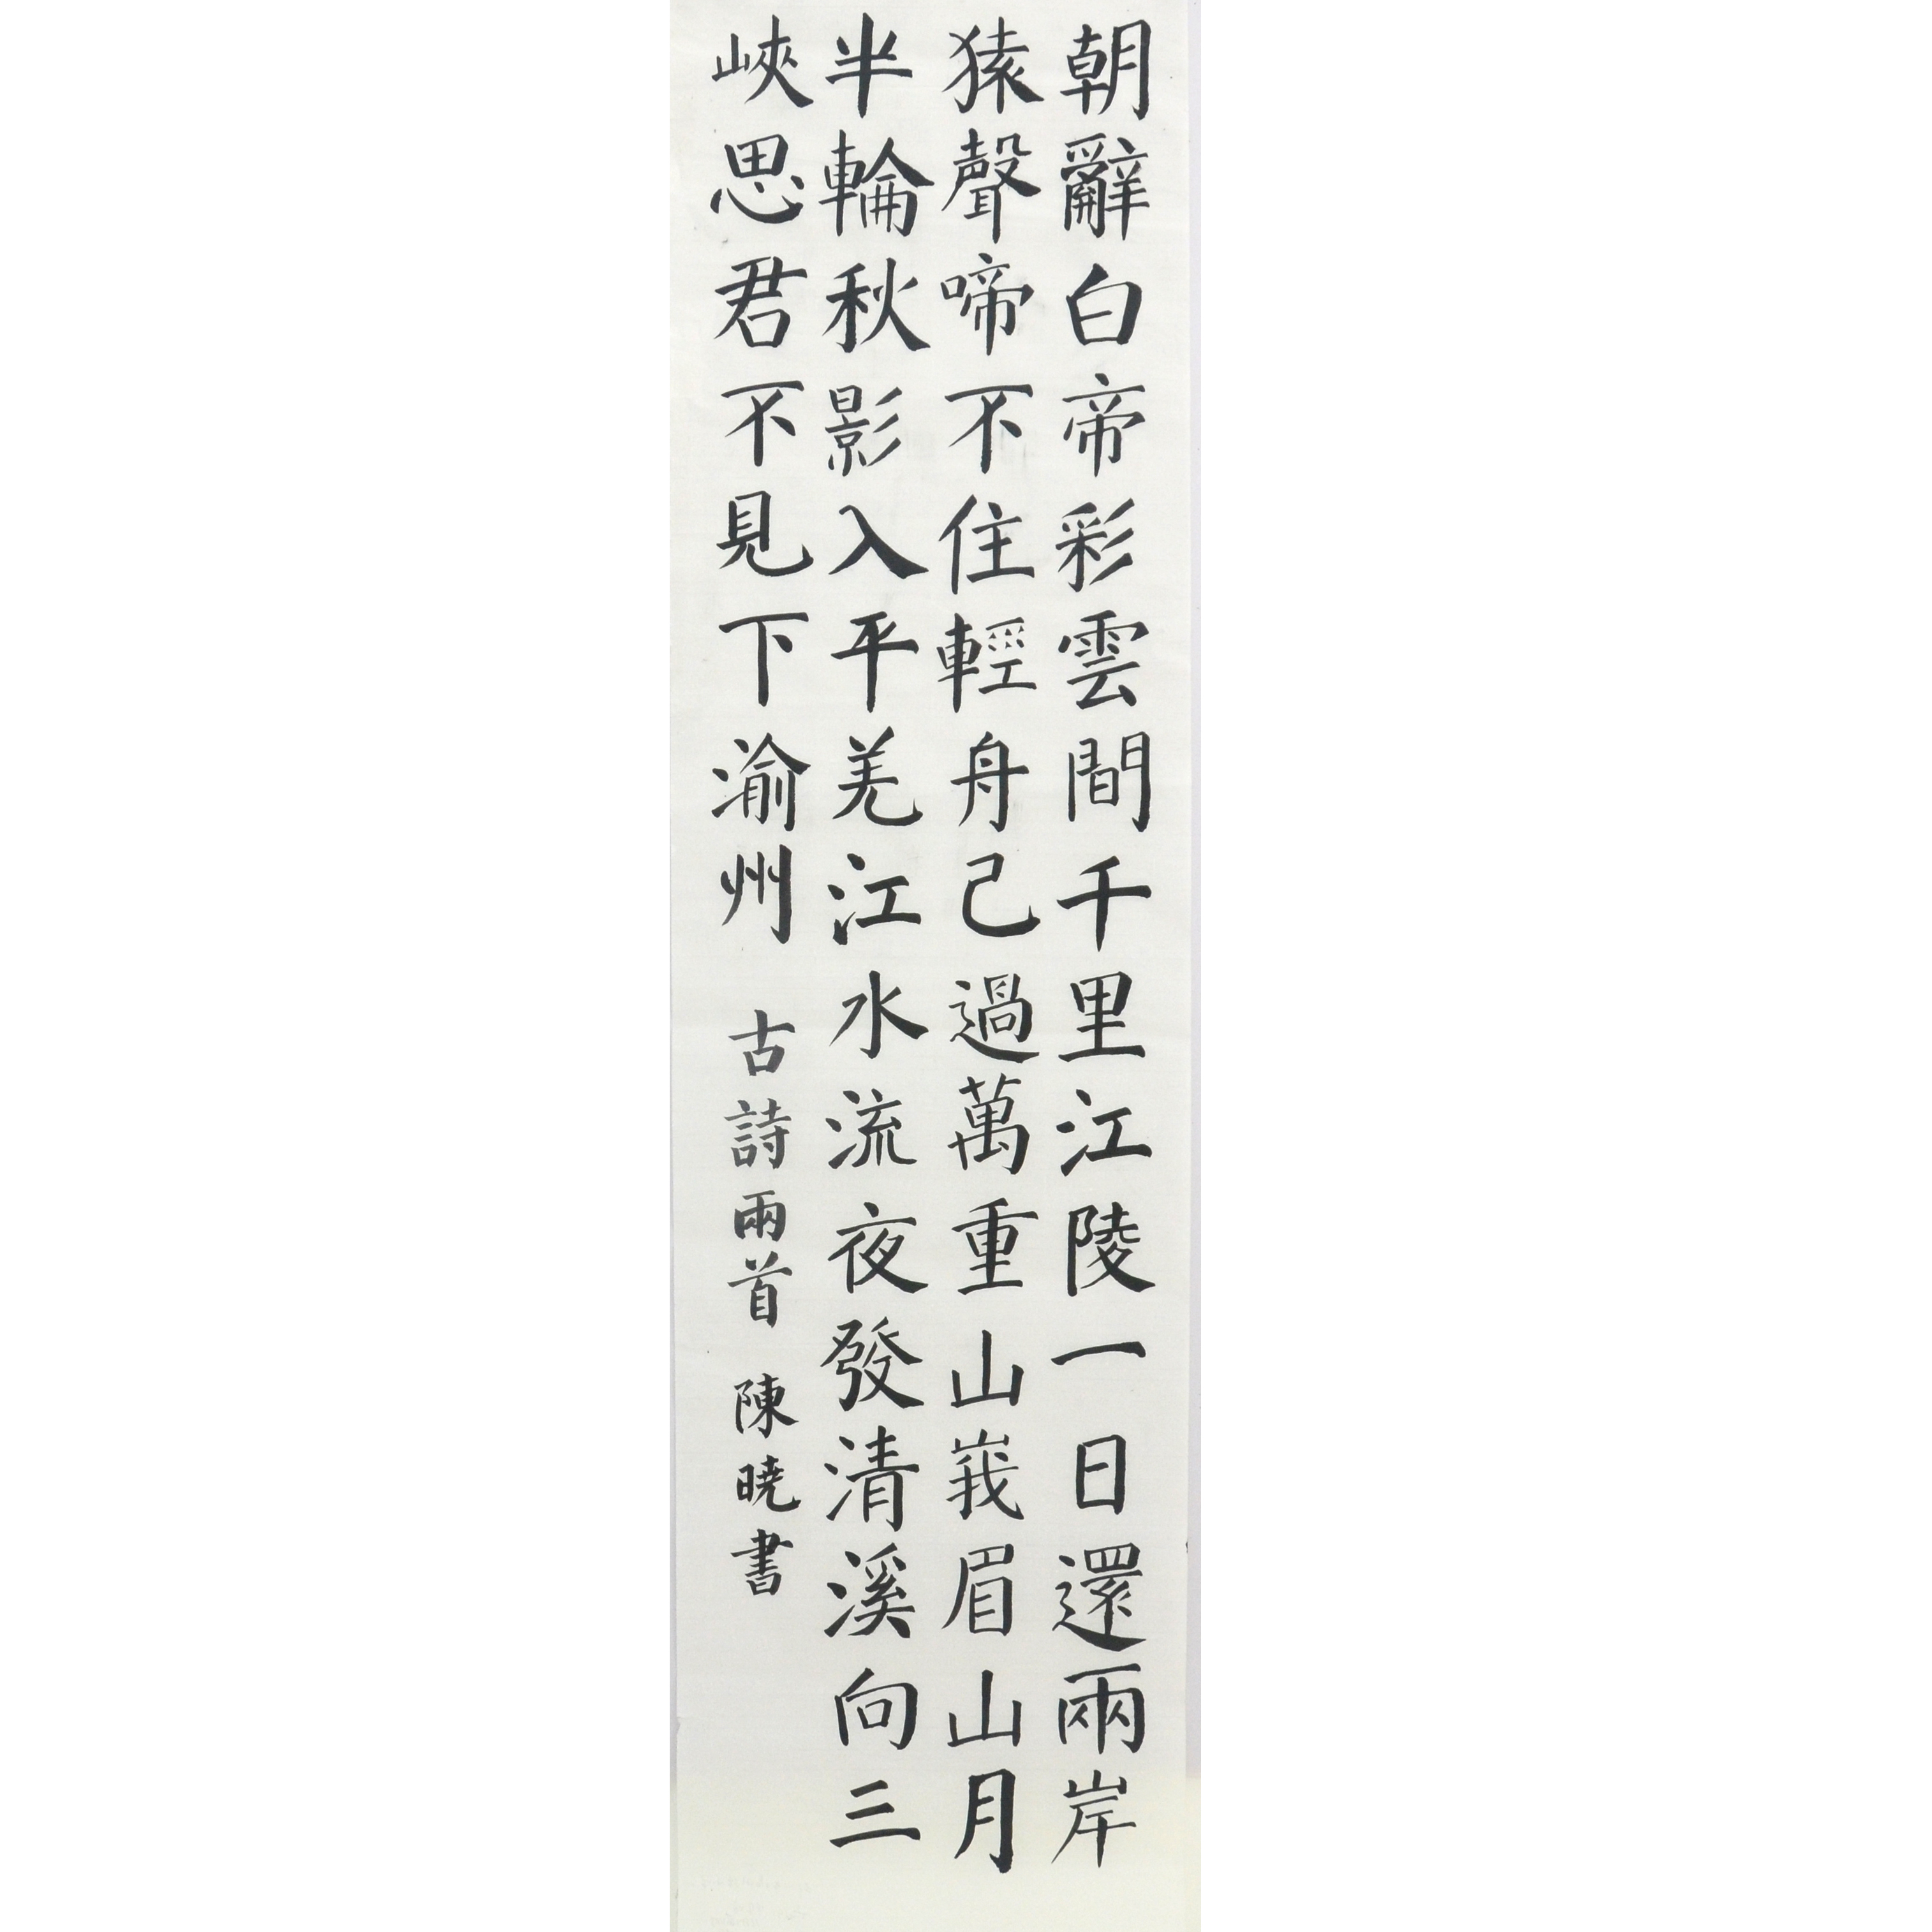 朝辭白帝彩雲間千里江陵一日還兩岸
猿聲啼不住輕舟己過萬重山峩眉山月
半輪秋影入平羌江水流夜發清溪向三
峽思君不見下渝州 古詩兩首 陳曉書